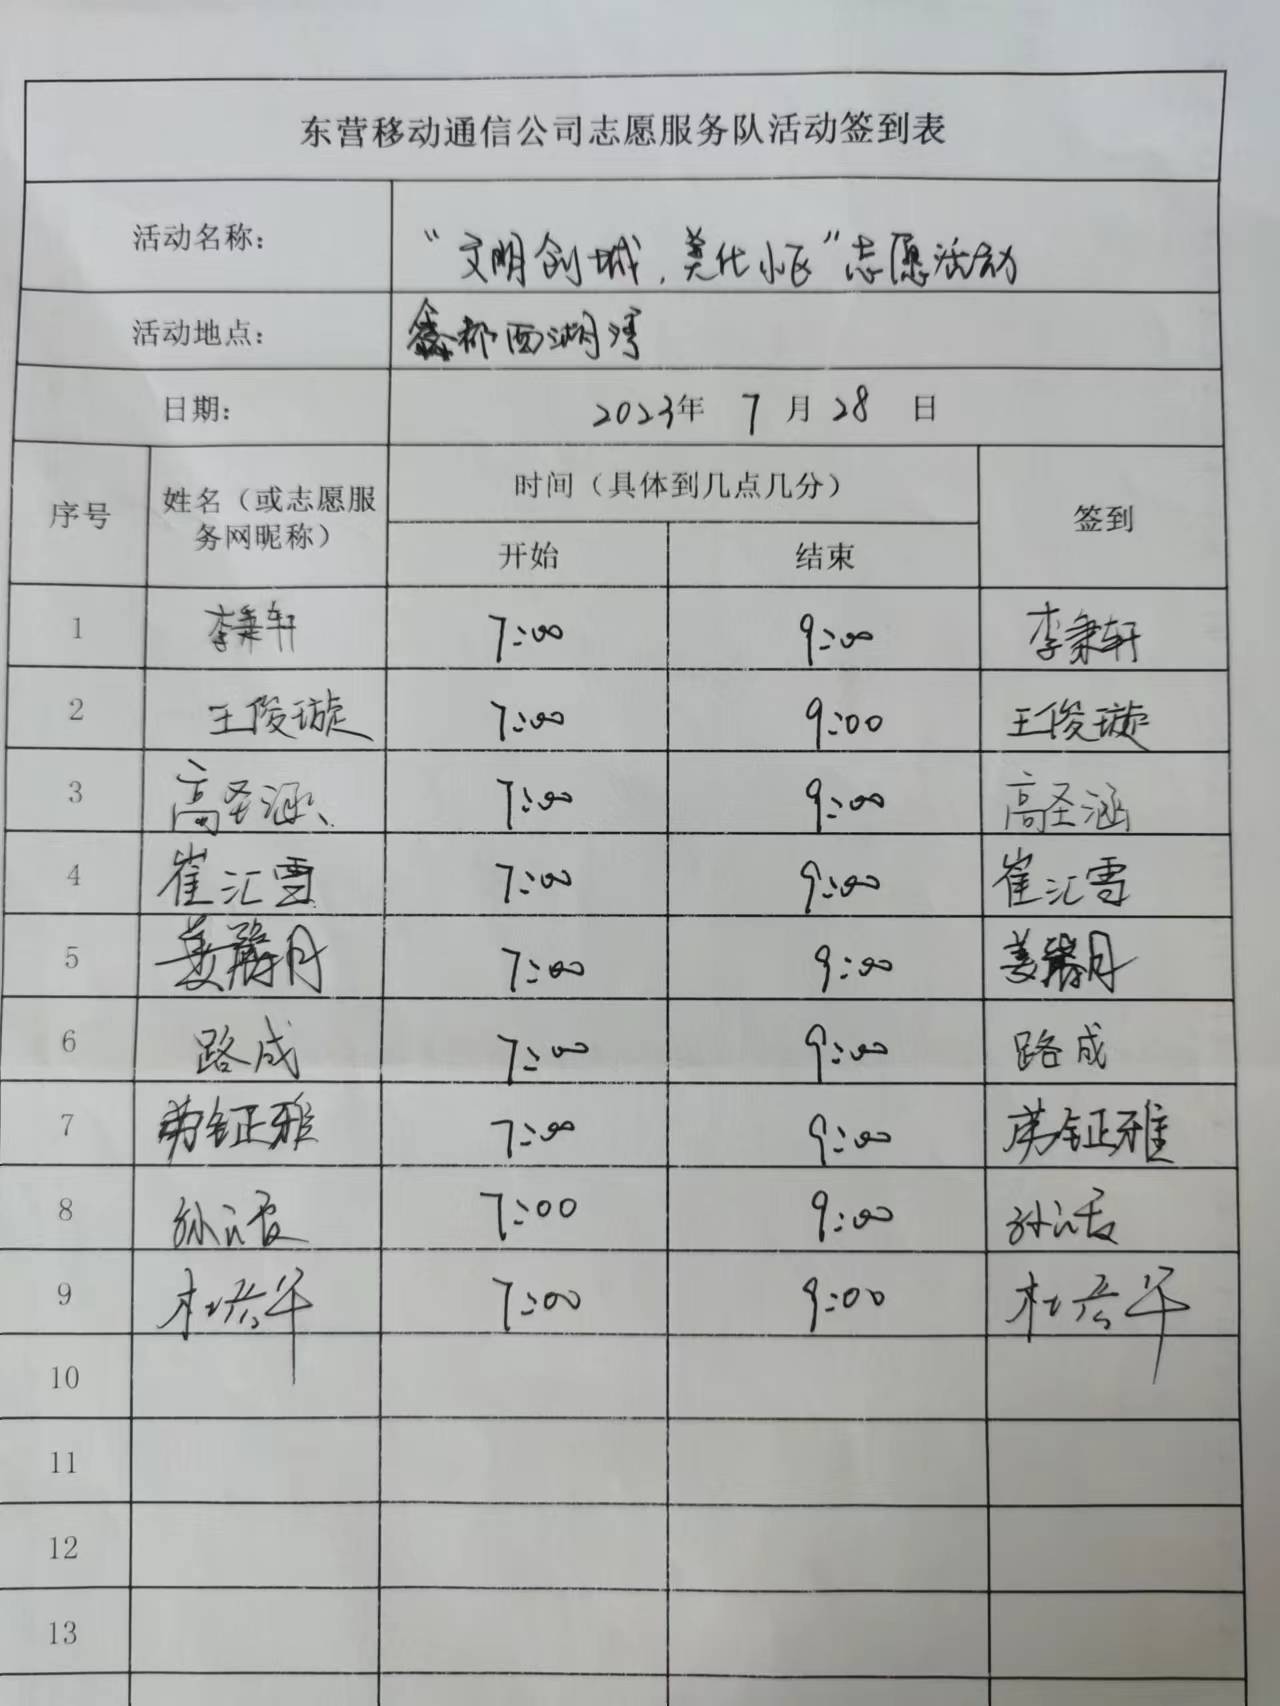 东营移动通信公司志愿服务队活动签到表
活动名称： “文明创城，美化小区”志愿活动
活动地点： 鑫都西湖湾
日期： 2023年 7 月 28 日
序号 姓名（或志愿服务网昵称） 时间（具体到几点几分） 签到
开始 结束
1 李秉轩 7:00 9:00 李秉轩
2 王俊璇 7:00 9:00 王俊璇
3 高圣涵 7:00 9:00 高圣涵
4 崔汇雪 7:00 9:00 崔汇雪
5 7:00 9:00
6 路成 7:00 9:00 路成
7 7:00 9:00
8 7:00 9:00
9 7:00 9:00
10
11
12
13